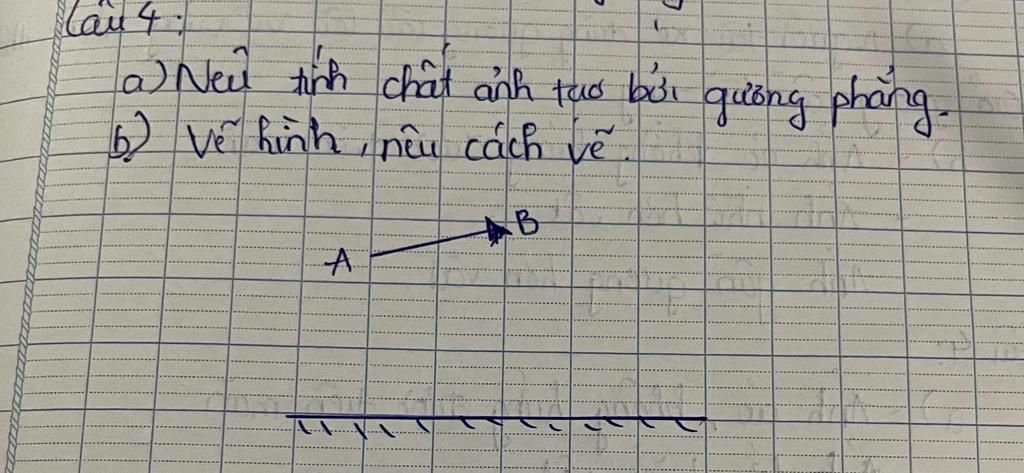 Câu 4:
a) Nêu tính chất ảnh tạo bởi gương phẳng.
b) Vẽ hình, nêu cách vẽ.
B
A